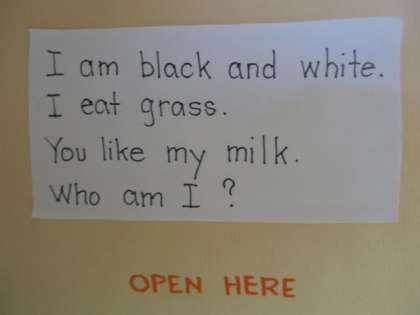 I am black and white.
I eat grass.
You like my milk.
Who am I ?
OPEN HERE